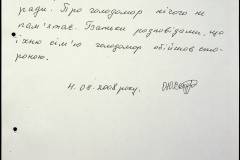 ради. Про голодомор нічого не
пам'ятає. Батьки розповідали, що
їхню сім'ю голодомор обійшов сто-
роною.
11.08.2008 року.